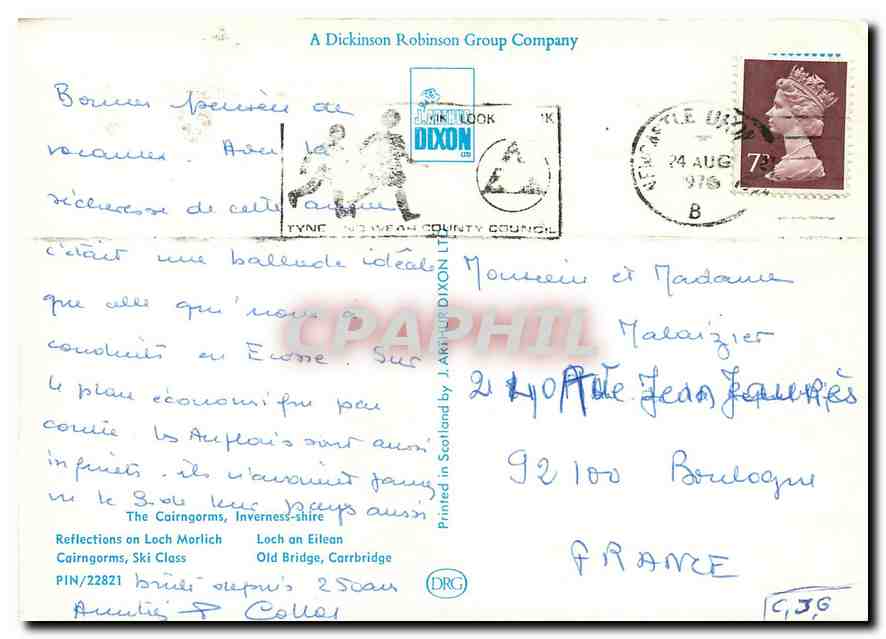 A Dickinson Robinson Group Company
J. ARTHUR
DIXON
LOOK
TYNE AND WEAR COUNTY COUNCIL
NEWCASTLE UPON
24 AUG
1976
B
7
Bonnes pensées de
vacances. Avec la
sécheresse de cette année
c'était une ballade idéale
que celle qui nous a
conduits en Ecosse. Sur
le plan économique par
contre les Anglais sont aussi
inquiets. ils n'avaient jamais
vu le S. de leur pays aussi
brûlé depuis 250 ans
Amitiés
Monsieur et Madame
Malaizier
Jean Jaurès
92100 Boulogne
FRANCE
Printed in Scotland by J. ARTHUR DIXON LTD.
CPAPHIL
The Cairngorms, Inverness-shire
Reflections on Loch Morlich Loch an Eilean
Cairngorms, Ski Class Old Bridge, Carrbridge
PIN/22821
DRG